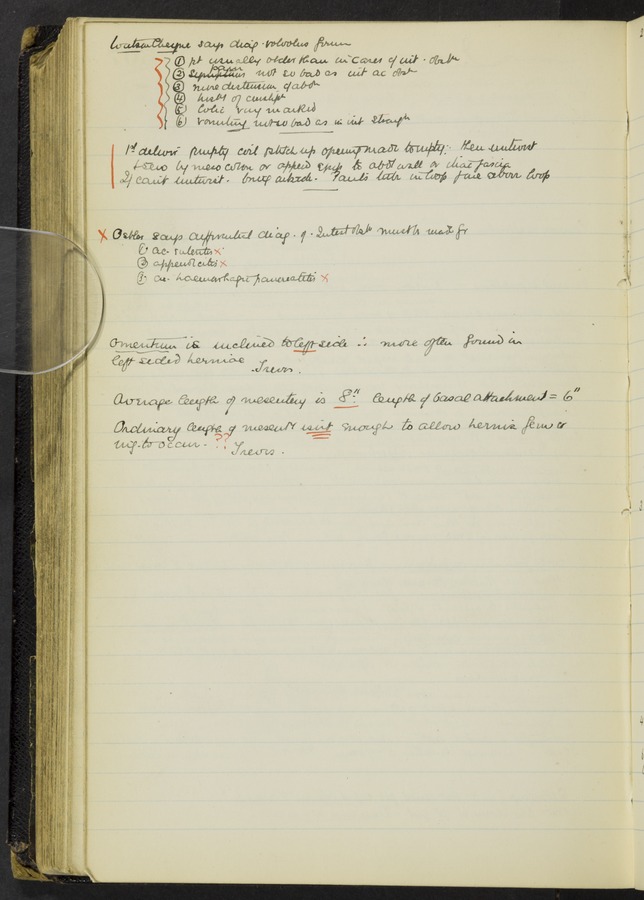 Watson Cheyne says diag. volvulus from
① pt usually older than in cases of int. obstn
② pain not so bad as int ac obstn
③ more distension of abdo
④ hist of constipn
⑤ Colic very marked
⑥ vomiting not so bad as in int strangn
1st deliver empty coil stitch up opening made to empty. then untwist
by meso colon or append epip to abd wall or iliac fascia
If can't untwist. bring outside. Pauls tube in loop above loop
x Osler says differential diag. of Intest obstn must be made fr
① ac. enteritis x
② appendicitis x
③ ac. haemorrhagic pancreatitis x
Omentum is inclined to left side ∴ more often found in
left sided herniae
Treves.
Average length of mesentery is 8" length of basal attachment = 6"
Ordinary length of mesenty isn't enough to allow hernia fem or
ing. to occur. ?? Treves.